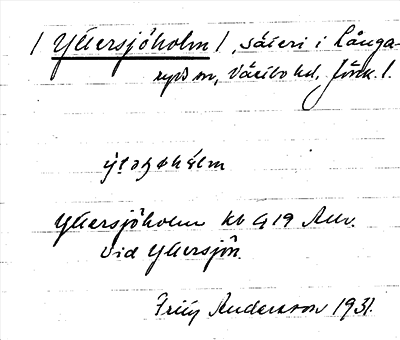 / Yttersjöholm /, säteri i Långa-
ryds sn, Västbo hd, Jönk. l.
Yttersjöholm kb G 19 Anv.
vid Yttersjön.
Fritz Andersson 1931.